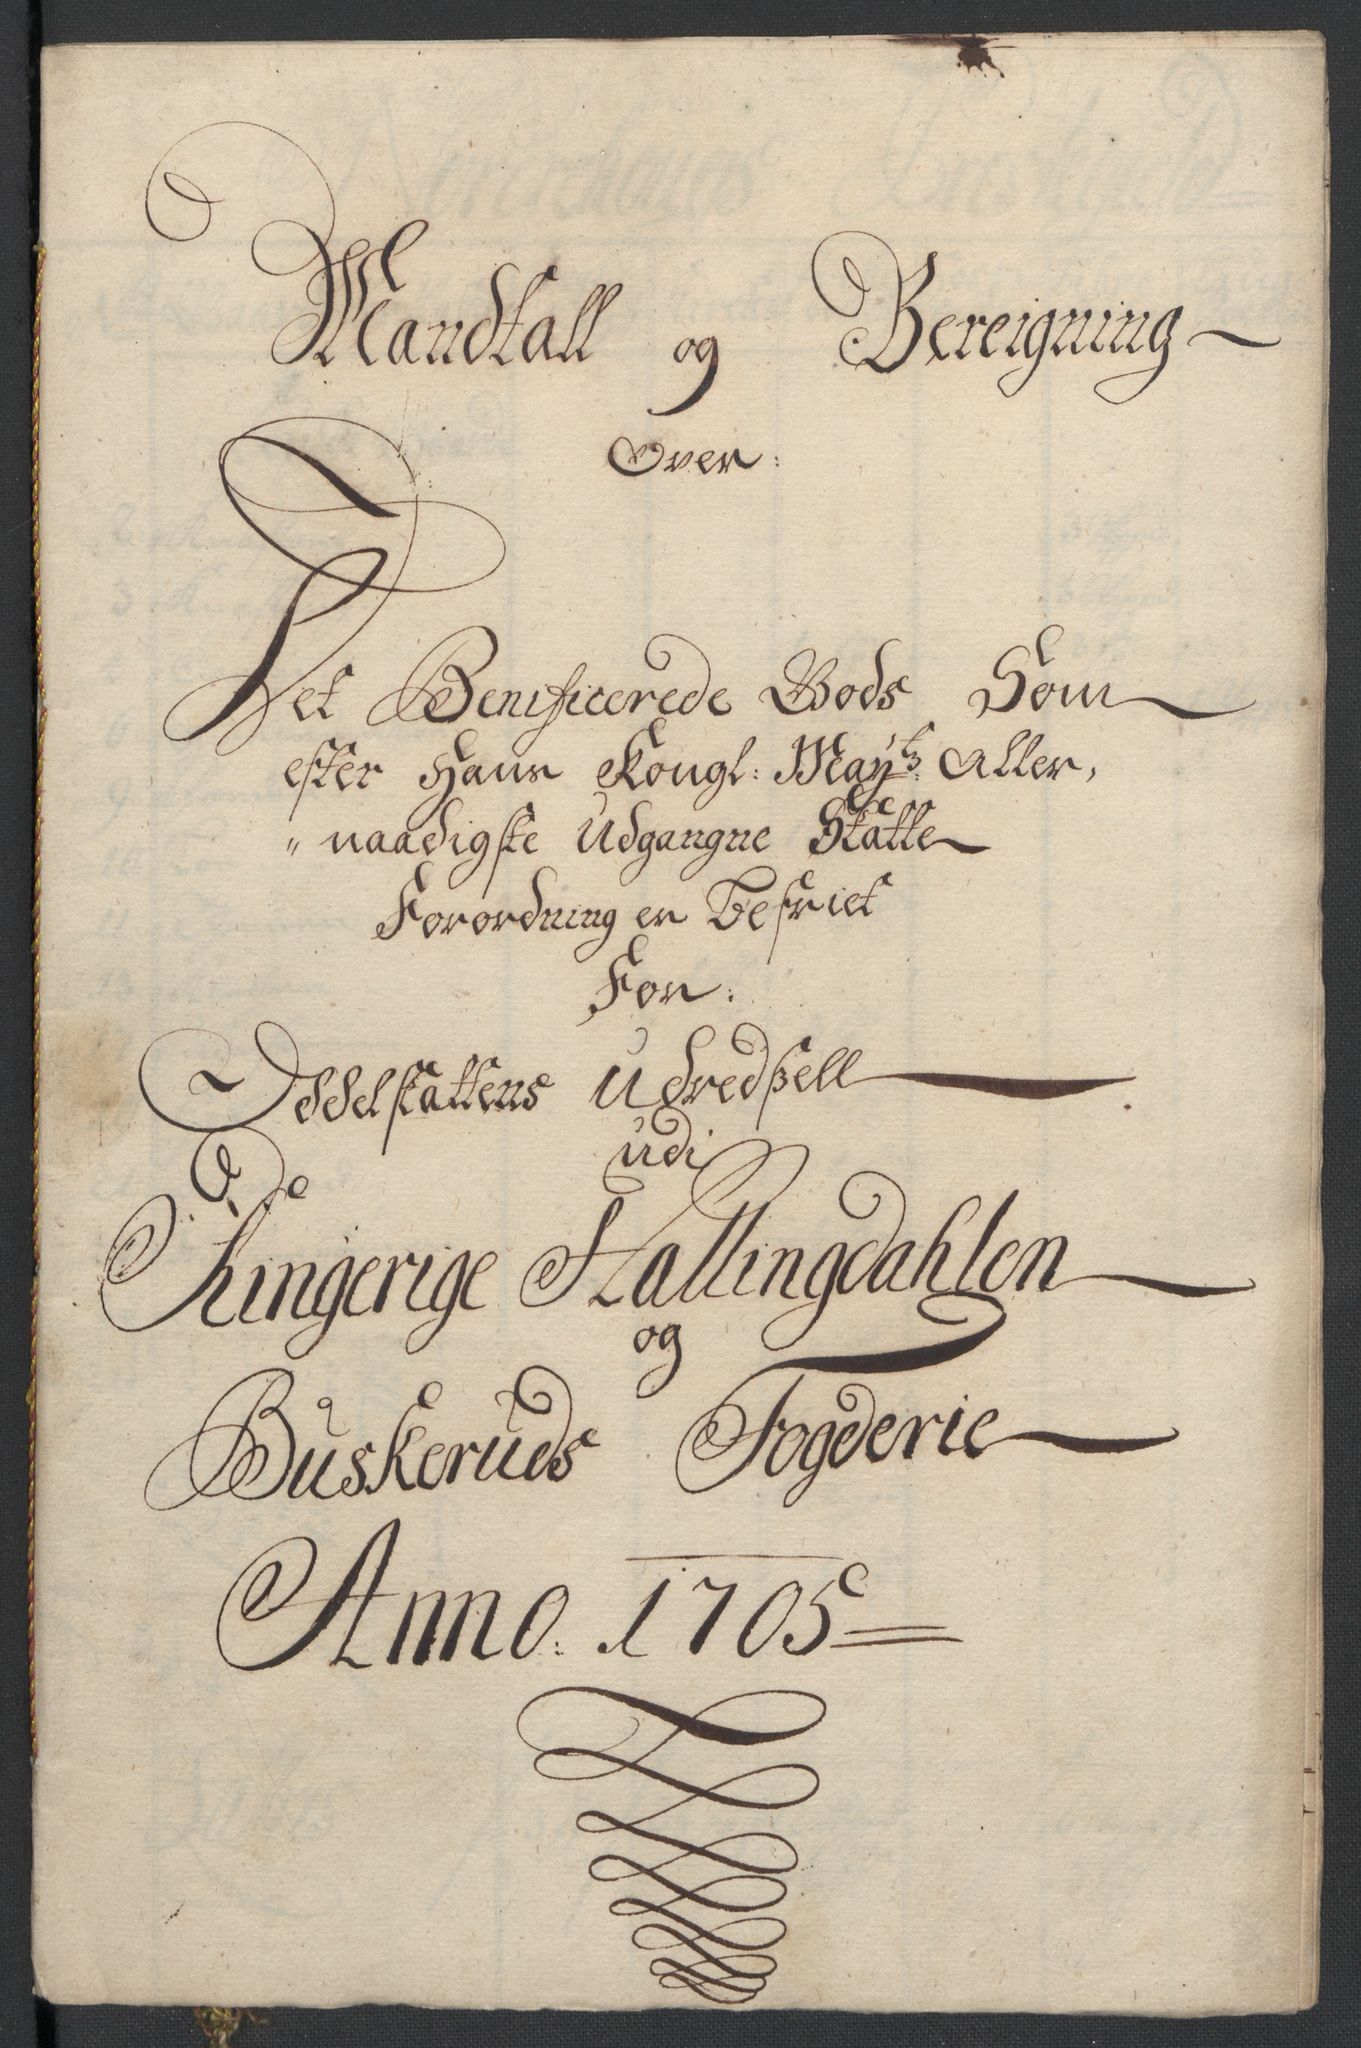 Mandtall og Bereigning
Over:
Det Benificerede Gods Som
efter Hans Kongl: May:ts Aller,
"naadigste Udgangne Skatte
Forordning er befriet
For:
Oddelskattens Udredßell
udi
Ringerige Hallingdahlen
og
Buskeruds Fogderie
Anno. 1705